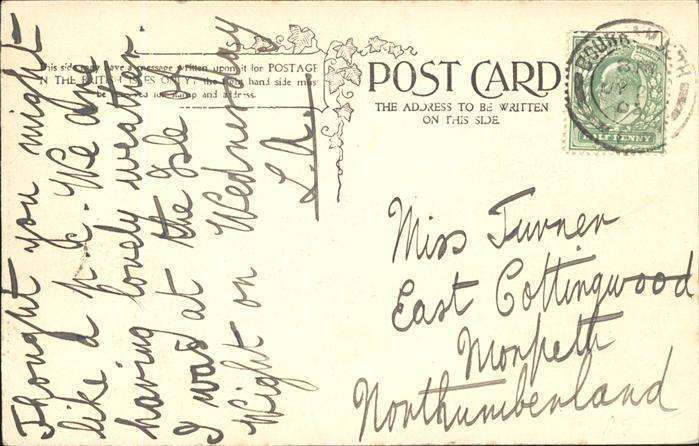 This side may have a message written upon it for POSTAGE
IN THE BRITISH ISLES ONLY, the right hand side must
be reserved for stamp and address.
POST CARD
THE ADDRESS TO BE WRITTEN
ON THIS SIDE
HALF PENNY
Thought you might
like a p. c. We are
having lovely weather.
I was at the Isle
Wight on Wednesday
L.A.
Miss Turner
East Cottingwood
Morpeth
Northumberland